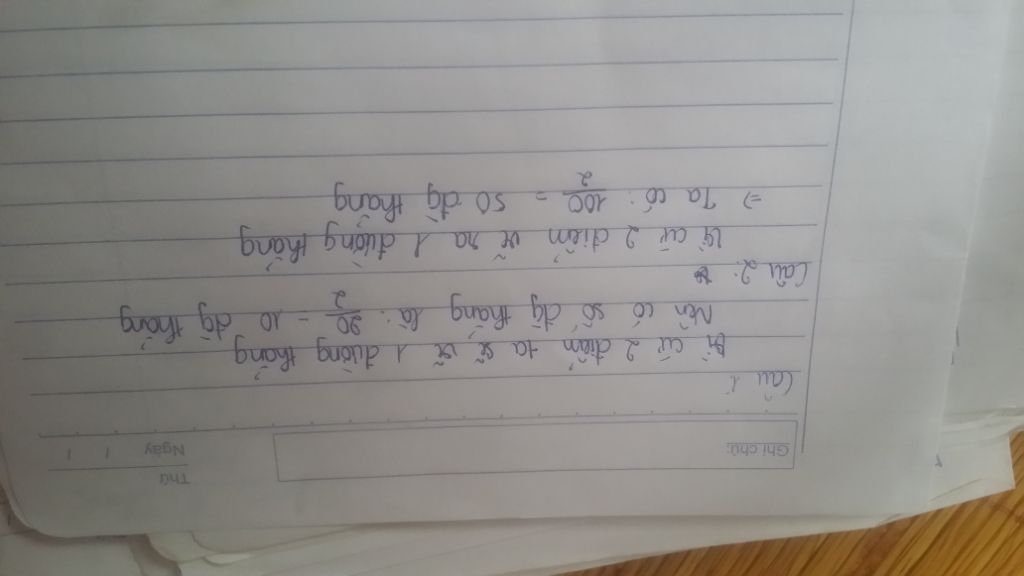 Ghi chú:
Thứ
Ngày / /
Câu 1:
Vì cứ 2 điểm ta sẽ vẽ 1 đường thẳng
Nên có số đg thẳng là: 20/2 = 10 đg thẳng
Câu 2:
Vì cứ 2 điểm vẽ ra 1 đường thẳng
=> Ta có: 100/2 = 50 đg thẳng